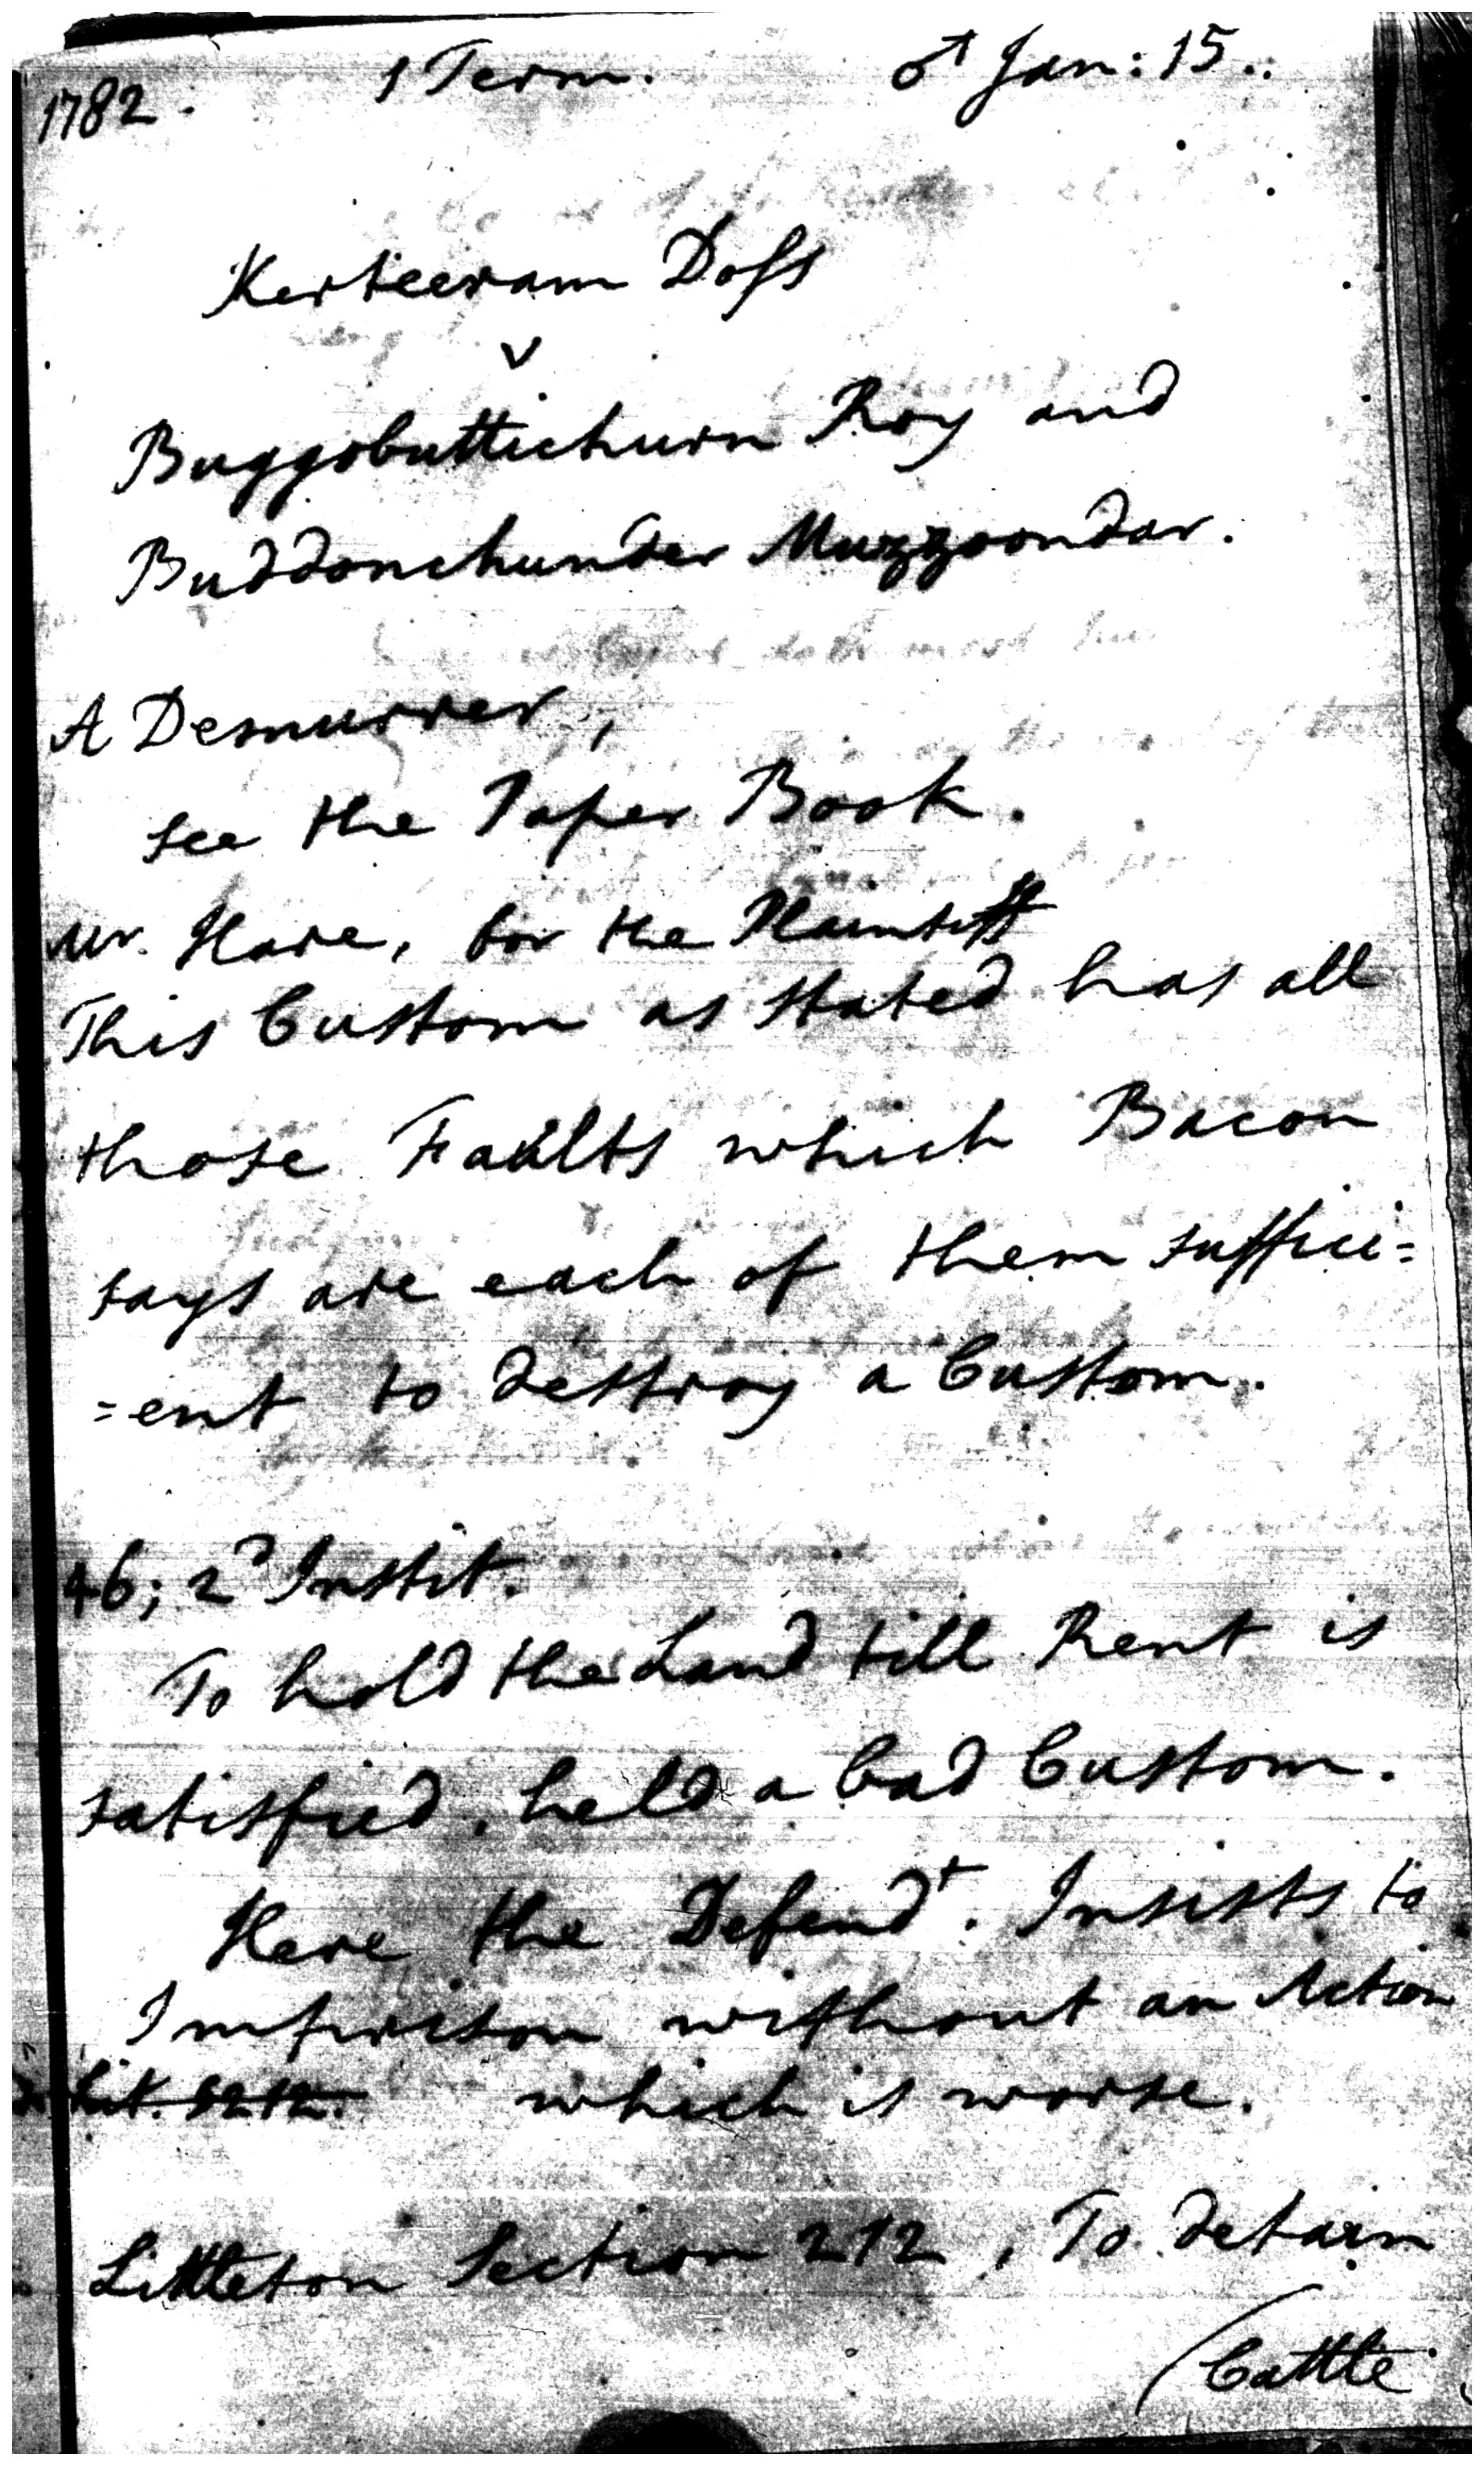 1782. 1 Term. ♂ Jan: 15..
Kerteeram Doss
v
Buggobuttichurn Roy and
Buddonchunder Muzzoondar.
A Demurrer,
see the Paper Book.
Mr. Hare, for the Plaintiff
This Custom as stated has all
those Faults which Bacon
says are each of them suffici=
=ent to destroy a Custom.
46; 2d Instit.
To hold the Land till Rent is
satisfied, held a bad Custom.
Here the Defendt. Insists to
Imprison without an Action
Lit. S212. which is worse.
Littleton Section 212, To detain
(Cattle